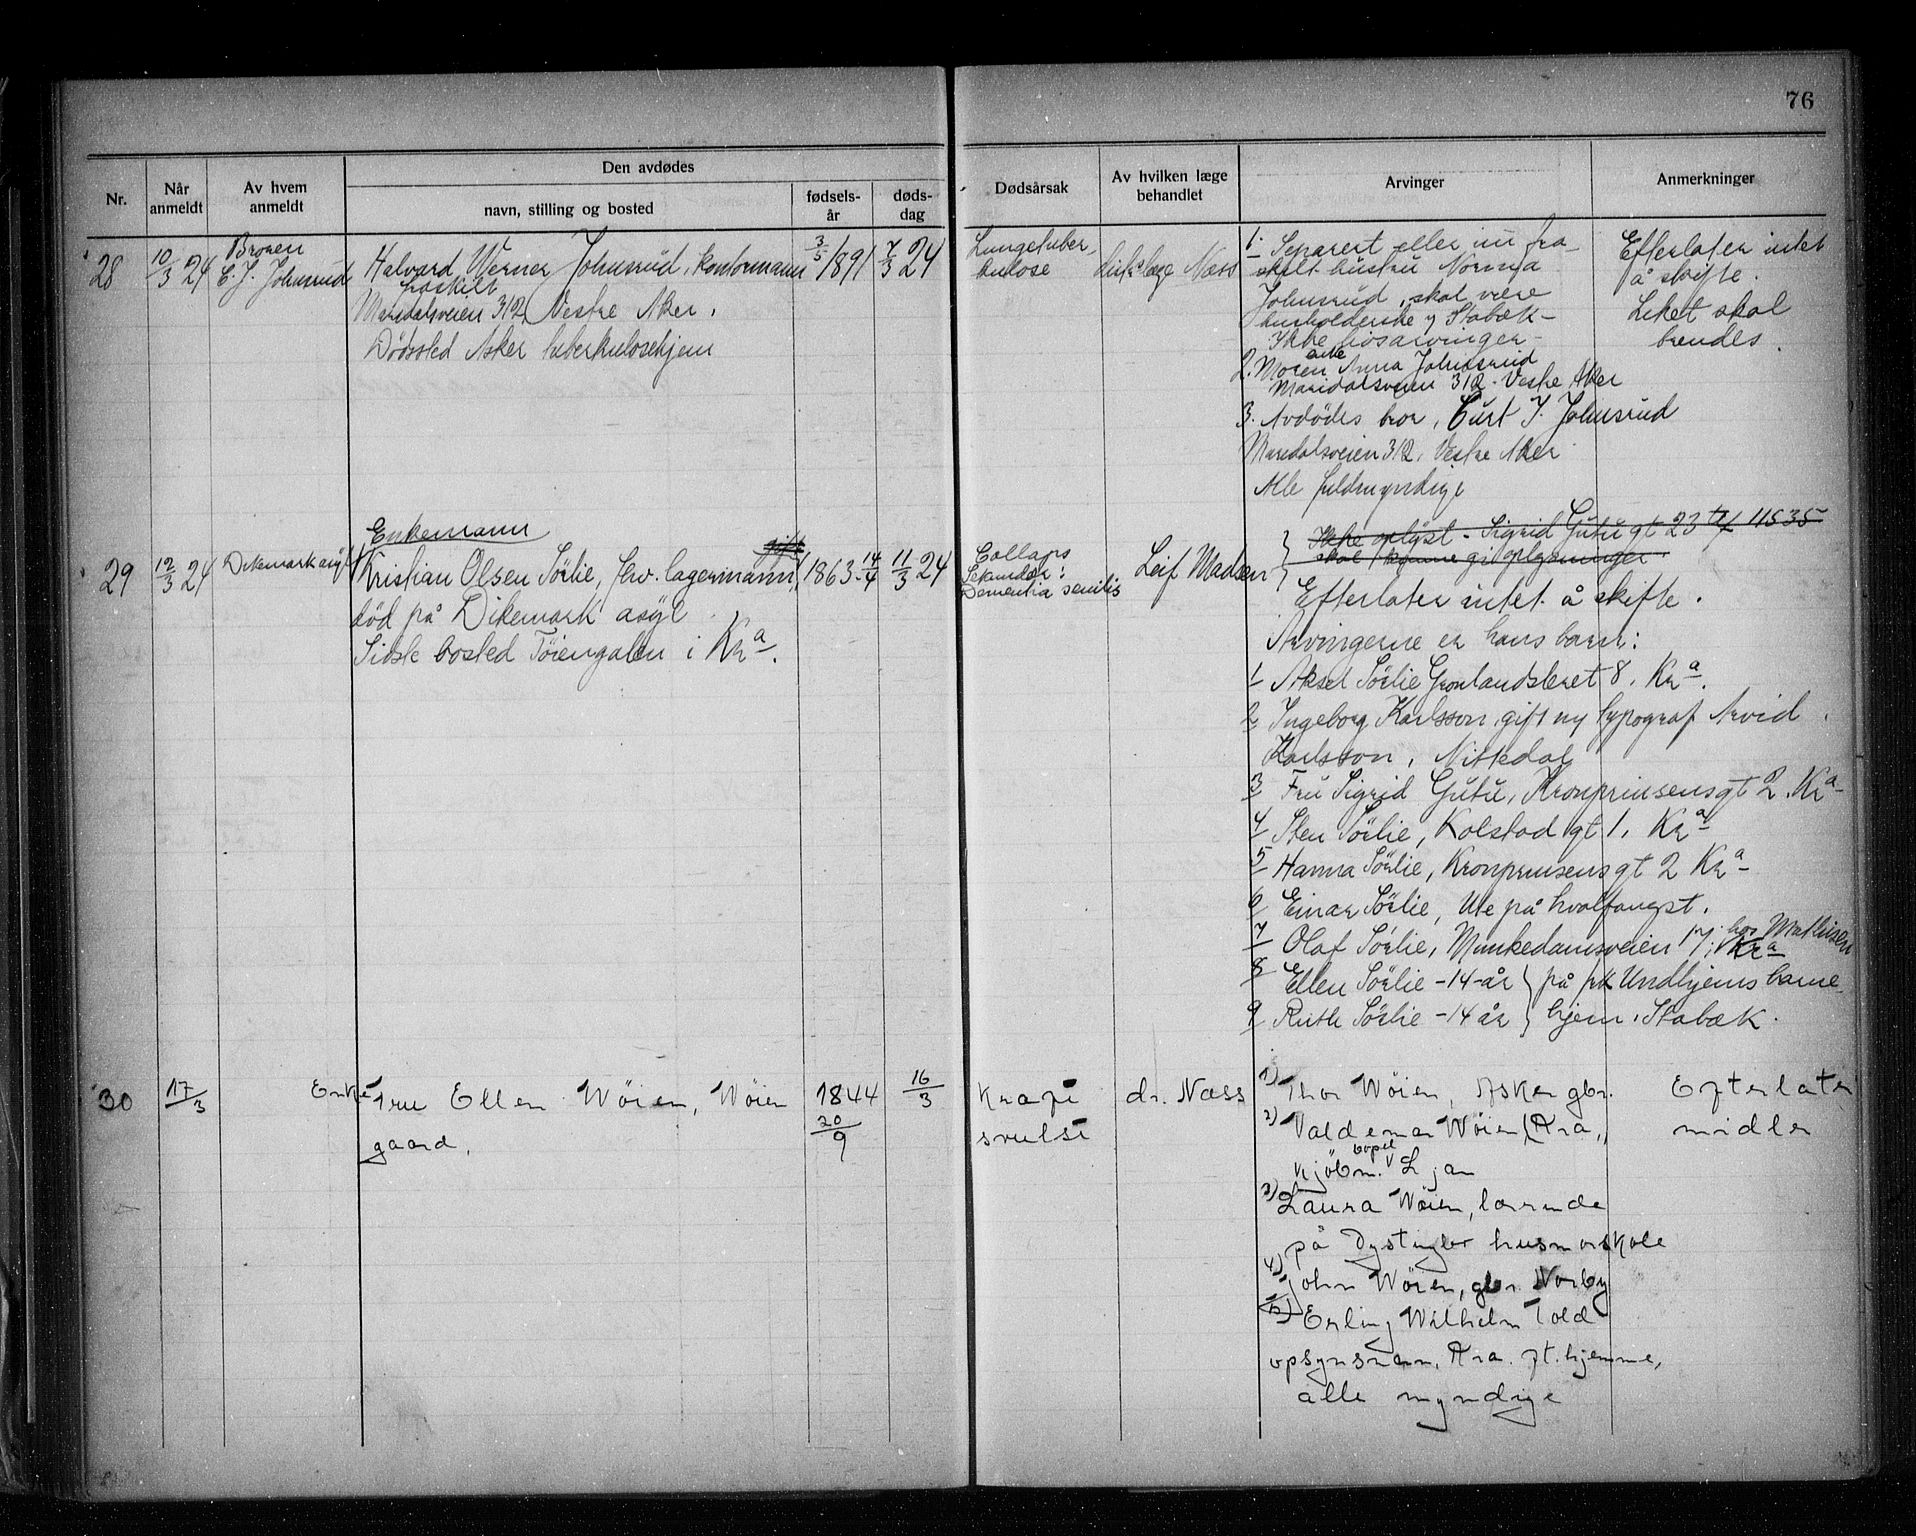 76
Nr.
Når anmeldt
Av hvem anmeldt
Den avdødes
navn, stilling og bosted
fødsels-år
døds-dag
Dødsårsak
Av hvilken læge behandlet
Arvinger
Anmerkninger
28
10/3 24
Broren
C. J. Johnsrud
Halvard Werner Johnsrud, kontormann
fraskilt
Maridalsveien 312, Vestre Aker.
Dødssted Asker tuberkulosehjem
3/5 1891
7/3 24
Lungetuber-
kulose
Næss
1. Separert eller nu fra-
skilt hustru Norma
Johnsrud, skal være
husholderske på Stabæk -
Ikke livsarvinger -
2. Moren enke Anna Johnsrud
Maridalsveien 312 - Vestre Aker
3. Avdødes bror, Curt J. Johnsrud
Maridalsveien 312, Vestre Aker
Alle fuldmyndige
Efterlater intet
å skifte.
Liket skal
brendes.
29
12/3 24
Dikemark asyl
Enkemann
gift
Kristian Olsen Sörlie, fhv. lagermann,
död på Dikemark asyl
Sidste bosted Töiengaten i Kr.a.
1863 - 14/4
11/3 24
Collaps
Sekundær:
Dementia senilis
Leif Madsen
Ikke oplyst - Sigrid Gutu gt 23 tlf 11535
skal kunne gi oplysninger
Efterlater intet å skifte.
Arvingerne er hans barn:
1 Aksel Sörlie Grønlandsleret 8. Kr.a.
2 Ingeborg Karlsson, gift m typograf Arvid
Karlsson, Nittedal
3 Fru Sigrid Gutu, Kronprinsensgt 2. Kr.a
4 Sten Sörlie, Kolstadgt 1. Kr.a
5 Hanna Sörlie, Kronprinsensgt 2 Kr.a
6 Einar Sörlie, Ute på hvalfangst.
7 Olaf Sörlie, Munkedamsveien 17, hos Mathisen Kr.a
8 Ellen Sörlie - 14 - år } på frk Undhjems barne-
9 Ruth Sörlie - 14 år } hjem, Stabæk.
30
17/3
Enke
Fru Ellen Wöien, Wöien
gaard.
1844
20/9
16/3
Kræft
svulst
dr. Næss
1) Thor Wöien, Asker gbr.
2) Valdemar Wöien, Kra,
kjöbm. bopel Ljan
3) Laura Wöien, lærerinde
på husmorskole
4) John Wöien, gbr. Norby
5) Erling Wilhelm Told
opsynsman, Kra. pt. hjemme,
alle myndige
Efterlater
midler